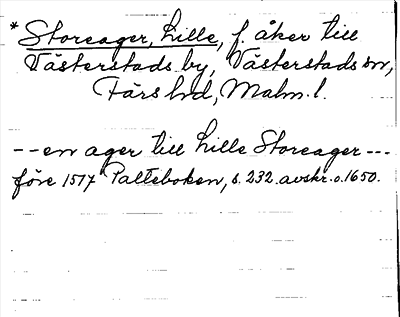 * Storeager, Lille, f. åker till
Västerstads by, Västerstads sn,
Färs hd, Malm. l.
-- en ager till Lille Storeager ---
före 1517 Palteboken, s. 232. avskr. o. 1650.